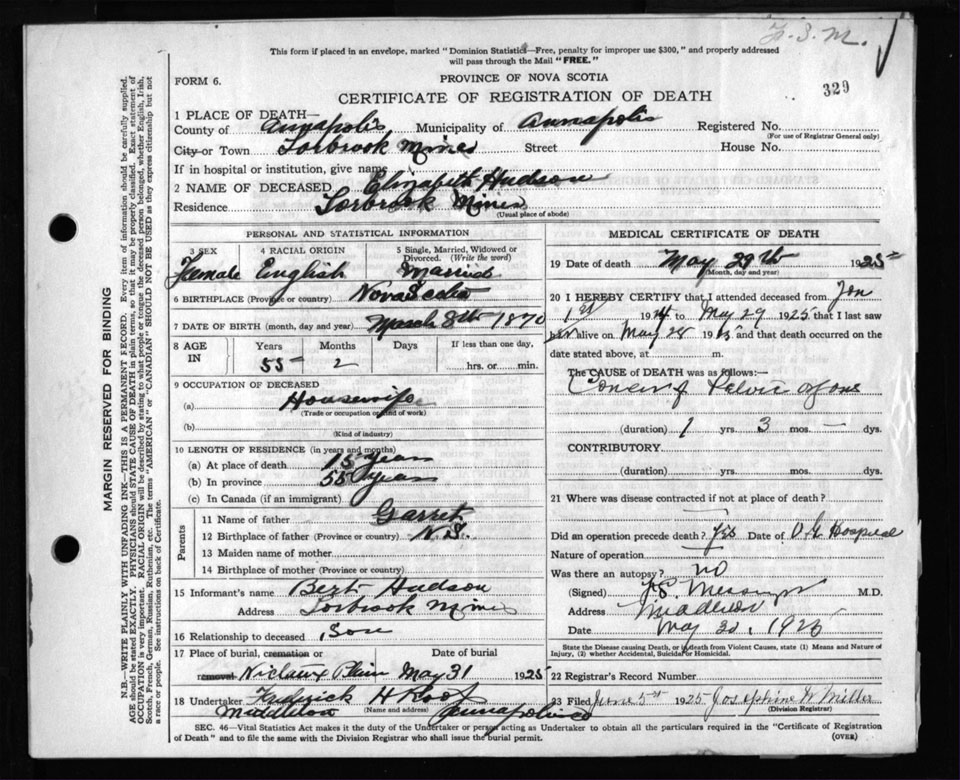 F. S. M.
This form if placed in an envelope, marked "Dominion Statistics—Free, penalty for improper use $300," and properly addressed
will pass through the Mail "FREE."
FORM 6.
PROVINCE OF NOVA SCOTIA
329
CERTIFICATE OF REGISTRATION OF DEATH
1 PLACE OF DEATH—
County of Annapolis Municipality of Annapolis Registered No.
(For use of Registrar General only)
City or Town Torbrook Mines Street House No.
If in hospital or institution, give name
2 NAME OF DECEASED Elizabeth Hudson
Residence Torbrook Mines
(Usual place of abode)
PERSONAL AND STATISTICAL INFORMATION
3 SEX 4 RACIAL ORIGIN 5 Single, Married, Widowed or
Divorced. (Write the word)
Female English Married
6 BIRTHPLACE (Province or country) Nova Scotia
7 DATE OF BIRTH (month, day and year) March 8th 1870
8 AGE IN Years Months Days If less than one day,
55 2 hrs. or min.
9 OCCUPATION OF DECEASED
(a) Housewife
(Trade or occupation or kind of work)
(b)
(Kind of industry)
10 LENGTH OF RESIDENCE (in years and months)
(a) At place of death 15 years
(b) In province 55 years
(c) In Canada (if an immigrant)
Parents
11 Name of father Garret
12 Birthplace of father (Province or country) N.S.
13 Maiden name of mother
14 Birthplace of mother (Province or country)
15 Informant's name Bert Hudson
Address Torbrook Mines
16 Relationship to deceased Son
17 Place of burial, cremation or Date of burial
removal Nictaux Plain May 31 1925
18 Undertaker H Roop
Middleton (Name and address) Annapolis Co
MEDICAL CERTIFICATE OF DEATH
19 Date of death May 29th 1925
(Month, day and year)
20 I HEREBY CERTIFY that I attended deceased from Jan
1st 1924 to May 29 1925 that I last saw
her alive on May 28 19 and that death occurred on the
date stated above, at m.
The CAUSE of DEATH was as follows:—
Cancer of Pelvic
(duration) 1 yrs. 3 mos. — dys.
CONTRIBUTORY
(duration) yrs. mos. dys.
21 Where was disease contracted if not at place of death?
Did an operation precede death? Yes Date of V. G. Hospital
Nature of operation
Was there an autopsy? no
(Signed) M.D.
Address Middleton
Date May 30, 1925
State the Disease causing Death, or in Death from Violent Causes, state (1) Means and Nature of
Injury, (2) whether Accidental, Suicidal or Homicidal.
22 Registrar's Record Number
23 Filed June 5th 1925 Josephine W Miller
(Division Registrar)
SEC. 46—Vital Statistics Act makes it the duty of the Undertaker or person acting as Undertaker to obtain all the particulars required in the "Certificate of Registration
of Death" and to file the same with the Division Registrar who shall issue the burial permit. (OVER)
MARGIN RESERVED FOR BINDING
N.B.—WRITE PLAINLY WITH UNFADING INK—THIS IS A PERMANENT RECORD. Every item of information should be carefully supplied.
AGE should be stated EXACTLY. PHYSICIANS should STATE CAUSE OF DEATH in plain terms, so that it may be properly classified. Exact statement of
OCCUPATION is very important. RACIAL ORIGIN will be described by stating to what people or tongue the deceased person belonged, whether English, Irish,
Scotch, French, German, Russian, Ruthenian, etc. The terms "AMERICAN" or "CANADIAN" SHOULD NOT BE USED as they express citizenship but not
a race or people. See instructions on back of Certificate.